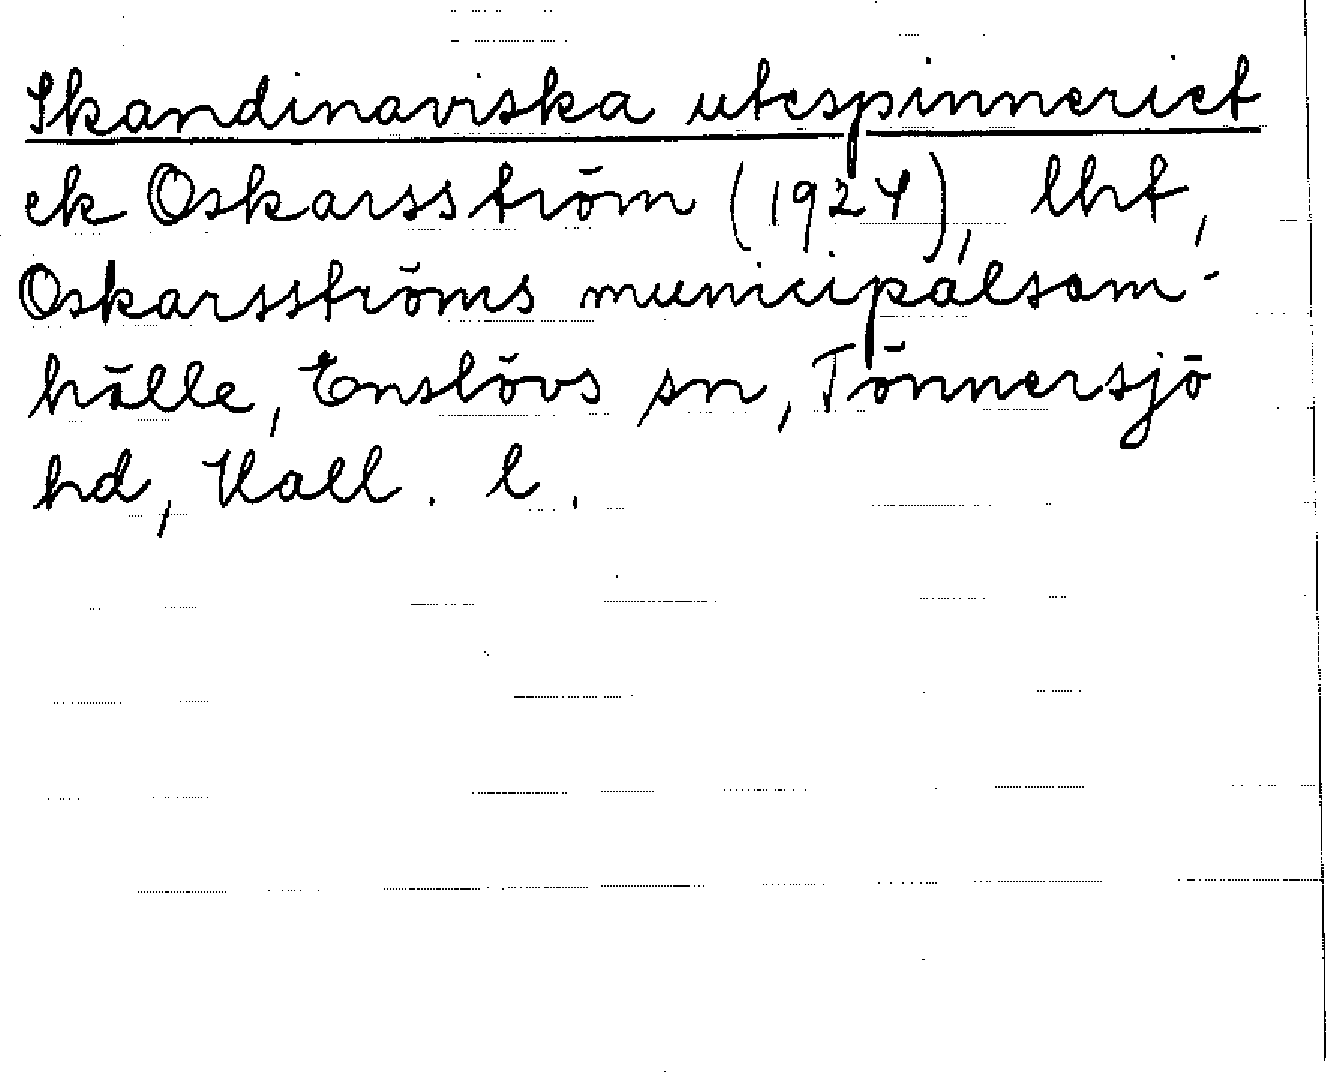 Skandinaviska utespinneriet
ek Oskarsström (1924), lht,
Oskarsströms municipalsam-
hälle, Enslövs sn, Tönnersjö
hd, Hall. l.